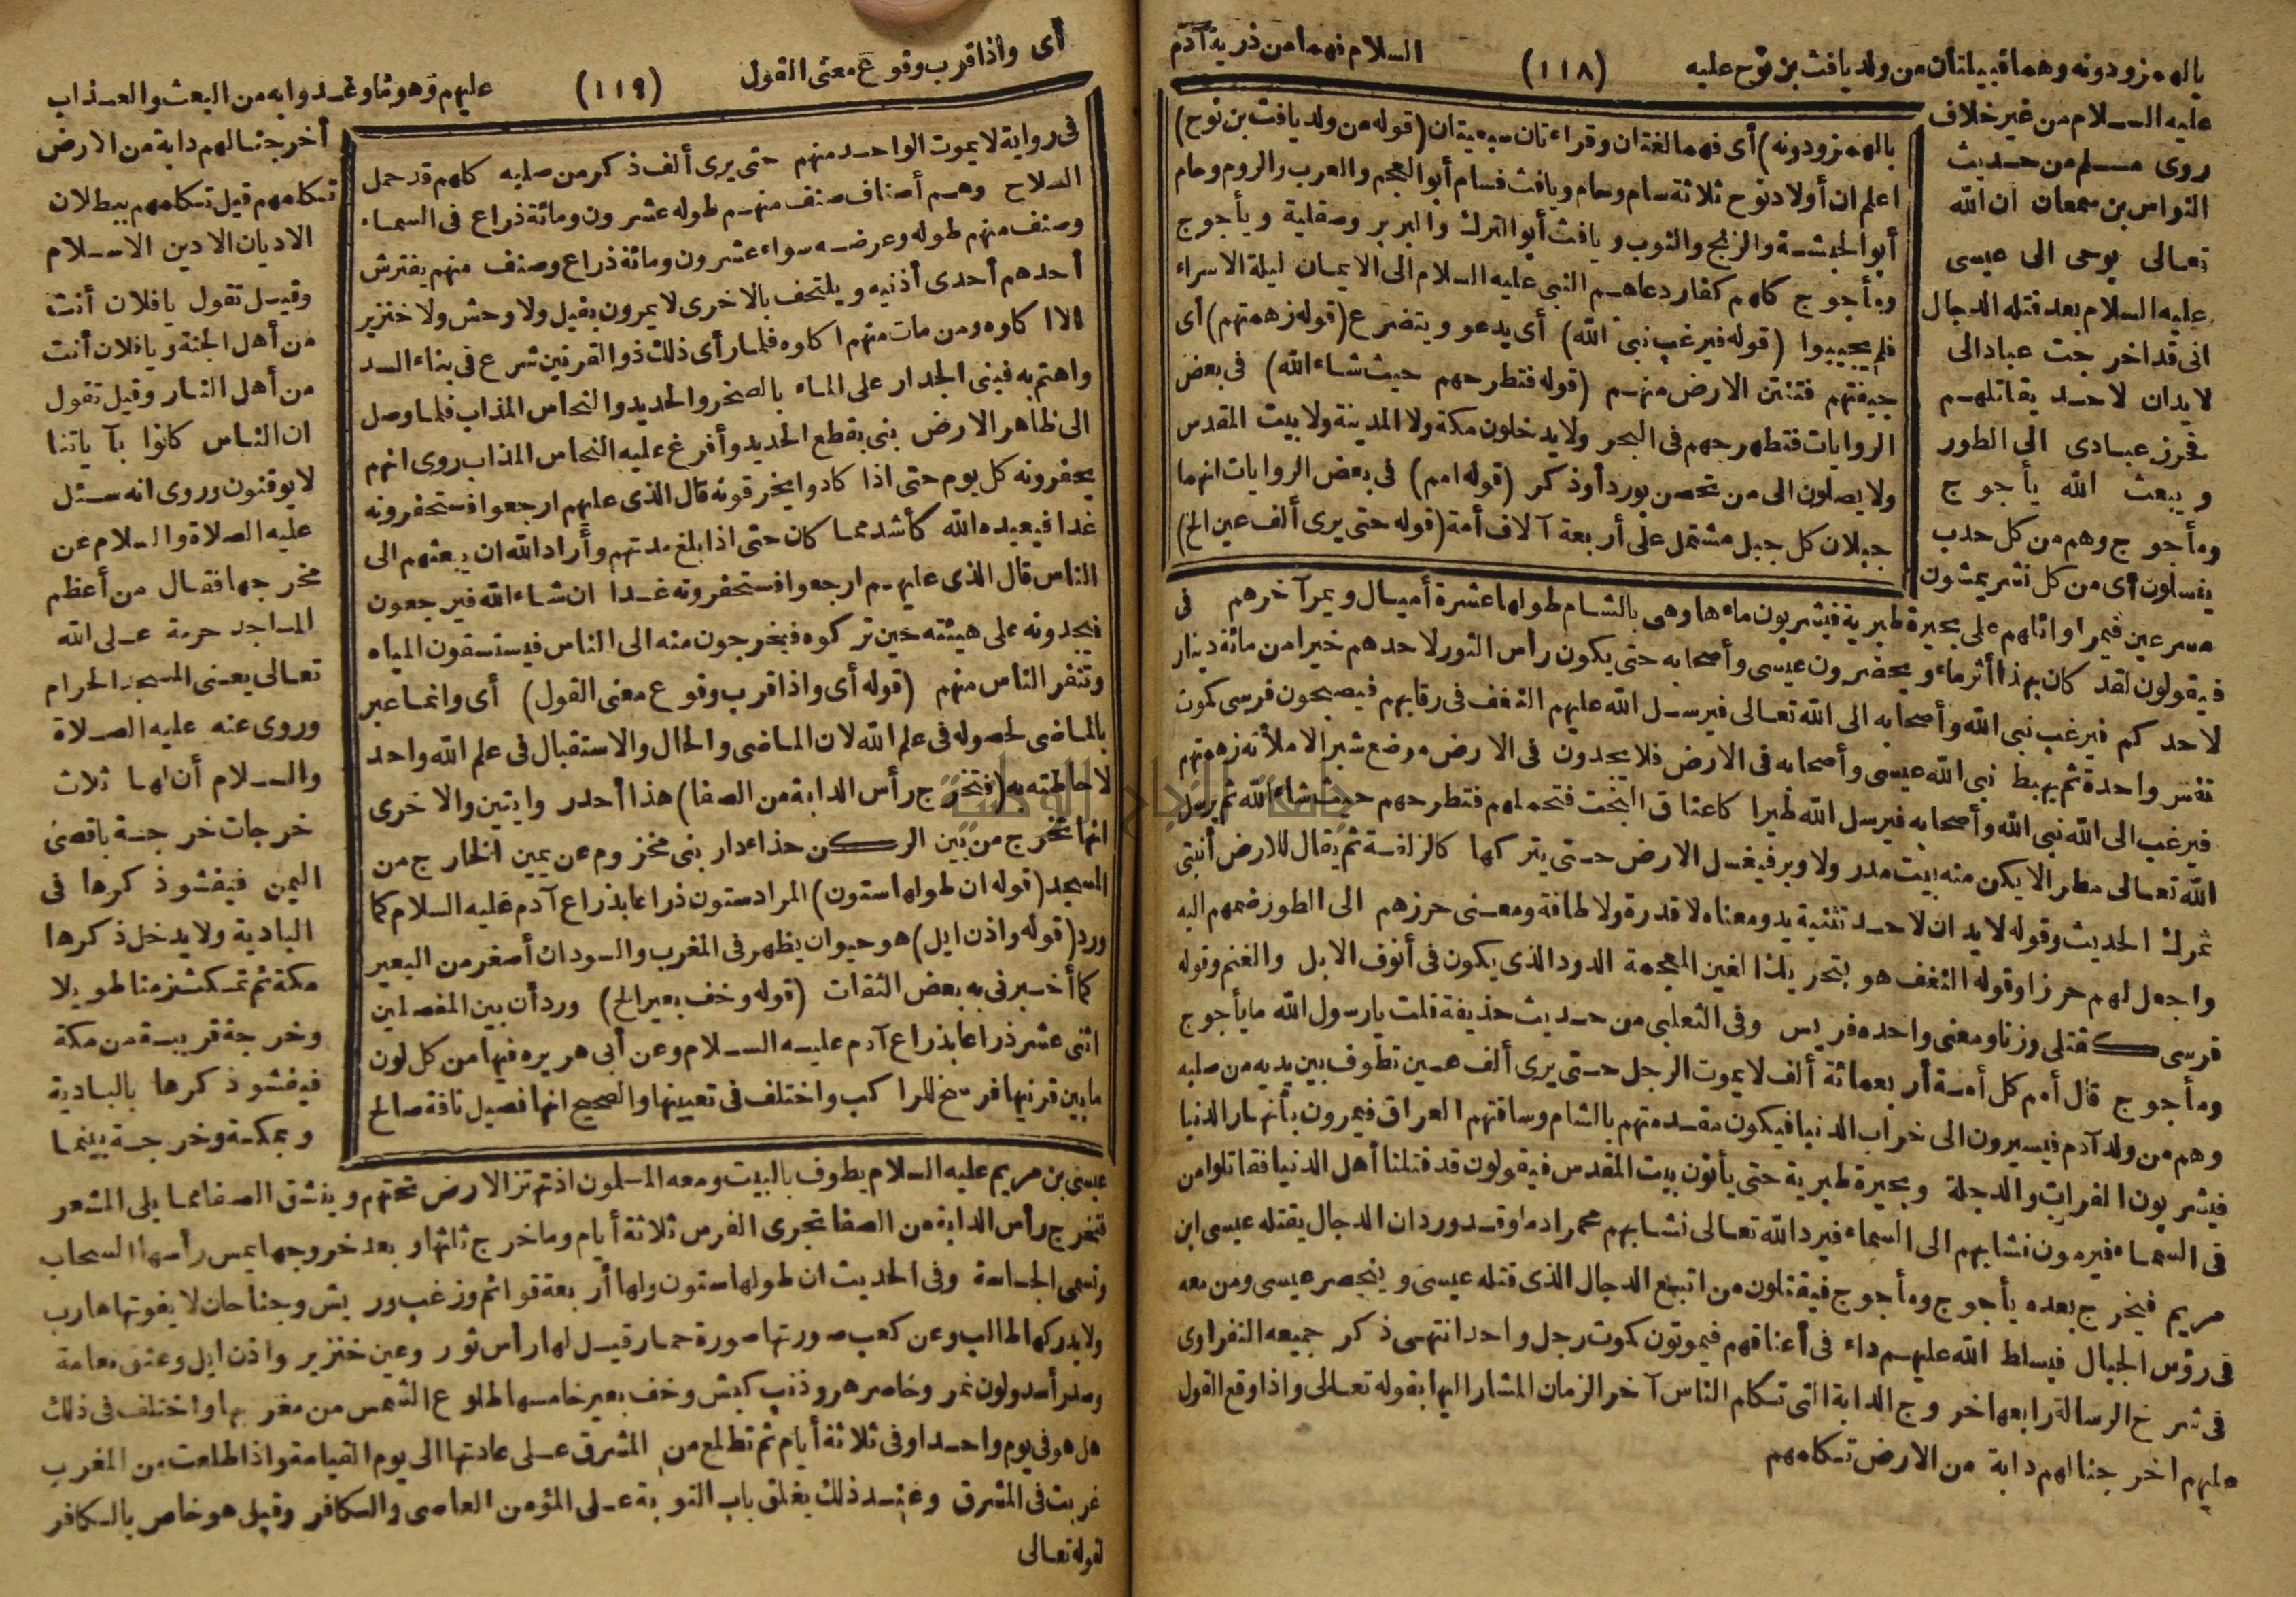 بالهمز ودونه وهما قبيلتان من ولد يافث بن نوح عليه (١١٨) السلام فهما من ذرية آدم
عليه السلام من غير خلاف
روى مسلم من حديث
النواس بن سمعان ان الله
تعالى يوحى الى عيسى
عليه السلام بعد قتله الدجال
انى قد اخرجت عبادا لى
لا يدان لاحد يقاتلهم
فحرز عبادى الى الطور
ويبعث الله يأجوج
ومأجوج وهم من كل حدب
ينسلون أى من كل نشر يمشون
بالهمز ودونه) أى فهما لغتان وقراءتان سبعيتان (قوله من ولد يافث بن نوح)
اعلم ان أولاد نوح ثلاثة سام وحام ويافث فسام أبو العجم والعرب والروم وحام
أبو الحبشة والزنج والنوب ويافث أبو الترك والبربر وصقلية ويأجوج
ومأجوج كلهم كفار دعاهم النبى عليه السلام الى الايمان ليلة الاسراء
فلم يجيبوا (قوله فيرغب نبى الله) أى يدعو ويتضرع (قوله زهمتهم) أى
جيفتهم فتنتن الارض منهم (قوله فتطرحهم حيث شاء الله) فى بعض
الروايات فتطرحهم فى البحر ولا يدخلون مكة ولا المدينة ولا بيت المقدس
ولا يصلون الى من تحصن بورد أو ذكر (قوله امم) فى بعض الروايات انهما
جبلان كل جبل مشتمل على أربعة آلاف أمة (قوله حتى يرى ألف عين الخ)
مسرعين فيمر اوائلهم على بحيرة طبرية فيشربون ماءها وهى بالشام طولها عشرة أميال ويمر آخرهم فى
فيقولون لقد كان بهذا أثر ماء ويحضرون عيسى وأصحابه حتى يكون رأس الثور لاحدهم خيرا من مائة دينار
لاحدكم فيرغب نبى الله وأصحابه الى الله تعالى فيرسل الله عليهم النغف فى رقابهم فيصبحون فرسى كموت
نفس واحدة ثم يهبط نبى الله عيسى وأصحابه فى الارض فلا يجدون فى الارض موضع شبر الا ملأته زهمتهم
فيرغب الى الله نبى الله وأصحابه فيرسل الله طيرا كاعناق البخت فتحملهم فتطرحهم حيث شاء الله ثم يرسل
الله تعالى مطرا لا يكن منه بيت مدر ولا وبر فيغسل الارض حتى يتركها كالزلفة ثم يقال للارض أنبتى
ثمرك الحديث وقوله لا يدان لاحد تثنية يد ومعناه لا قدرة ولا طاقة ومعنى حرزهم الى الطور ضمهم اليه
واجعل لهم حرزا وقوله النغف هو بتحريك الغين المعجمة الدود الذى يكون فى أنوف الابل والغنم وقوله
فرسى كقتلى وزنا ومعنى واحده فريس وفى الثعلبى من حديث حذيفة قلت يارسول الله ما يأجوج
ومأجوج قال أمم كل أمة أربعمائة ألف لا يموت الرجل حتى يرى ألف عين تطوف بين يديه من صلبه
وهم من ولد آدم فيسيرون الى خراب الدنيا فيكون مقدمتهم بالشام وساقتهم العراق فيمرون بأنهار الدنيا
فيشربون الفرات والدجلة وبحيرة طبرية حتى يأتون بيت المقدس فيقولون قد قتلنا أهل الدنيا فقاتلوا من
فى السماء فيرمون نشابهم الى السماء فيرد الله تعالى نشابهم محمرا دما وقد ورد ان الدجال يقتله عيسى ابن
مريم فيخرج بعده يأجوج ومأجوج فيقتلون من اتبع الدجال الذى قتله عيسى وينحصر عيسى ومن معه
فى رؤس الجبال فيسلط الله عليهم داء فى أعناقهم فيموتون كموت رجل واحد انتهى ذكر جميعه النفراوى
فى شرح الرسالة رابعها خروج الدابة التى تكلم الناس آخر الزمان المشار اليها بقوله تعالى واذا وقع القول
عليهم اخرجنا لهم دابة من الارض تكلمهم
أى واذا قرب وقوع معنى القول (١١٩) عليهم وهو ما وعدوا به من البعث والعذاب
فى رواية لا يموت الواحد منهم حتى يرى ألف ذكر من صلبه كلهم قد حمل
السلاح وهم أصناف صنف منهم طوله عشرون ومائة ذراع فى السماء
وصنف منهم طوله وعرضه سواء عشرون ومائة ذراع وصنف منهم يفترش
أحدهم أحدى أذنيه ويلتحف بالاخرى لا يمرون بفيل ولا وحش ولا خنزير
الا اكلوه ومن مات منهم اكلوه فلما رأى ذلك ذو القرنين شرع فى بناء السد
واهتم به فبنى الجدار على الماء بالصخر والحديد والنحاس المذاب فلما وصل
الى ظاهر الارض بنى بقطع الحديد وأفرغ عليه النحاس المذاب روى انهم
يحفرونه كل يوم حتى اذا كادوا يخرقونه قال الذى عليهم ارجعوا فستحفرونه
غدا فيعيده الله كأشد مما كان حتى اذا بلغ مدتهم وأراد الله ان يبعثهم الى
الناس قال الذى عليهم ارجعوا فستحفرونه غدا ان شاء الله فيرجعون
فيجدونه على هيئته حين تركوه فيخرجون منه الى الناس فيستسقون المياه
وتنفر الناس منهم (قوله أى واذا قرب وقوع معنى القول) أى وانما عبر
بالماضى لحصوله فى علم الله لان الماضى والحال والاستقبال فى علم الله واحد
لاحاطته به (فتخرج رأس الدابة من الصفا) هذا أحد روايتين والاخرى
انها تخرج من بين الركن حذاء دار بنى مخزوم عن يمين الخارج من
المسجد (قوله ان طولها ستون) المراد ستون ذراعا بذراع آدم عليه السلام كما
ورد (قوله واذن ايل) هو حيوان يظهر فى المغرب والسودان أصغر من البعير
كما أخبرنى به بعض الثقات (قوله وخف بعير الخ) ورد أن بين المفصلين
اثنى عشر ذراعا بذراع آدم عليه السلام وعن أبى هريره فيها من كل لون
ما بين قرنيها فرسخ للراكب واختلف فى تعيينها والصحيح انها فصيل ناقة صالح
أخرجنا لهم دابة من الارض
تكلمهم قيل تكلمهم ببطلان
الاديان الا دين الاسلام
وقيل تقول يافلان أنت
من أهل الجنة ويافلان أنت
من أهل النار وقيل تقول
ان الناس كانوا بآياتنا
لا يوقنون وروى انه سئل
عليه الصلاة والسلام عن
مخرجها فقال من أعظم
المساجد حرمة على الله
تعالى يعنى المسجد الحرام
وروى عنه عليه الصلاة
والسلام أن لها ثلاث
خرجات خرجة باقصى
اليمن فيفشو ذكرها فى
البادية ولا يدخل ذكرها
مكة ثم تمكث زمنا طويلا
وخرجة قريبة من مكة
فيفشو ذكرها بالبادية
وبمكة وخرجة بينما
عيسى بن مريم عليه السلام يطوف بالبيت ومعه المسلمون اذ تهتز الارض تحتهم وينشق الصفا مما يلى المشعر
فتخرج رأس الدابة من الصفا تجرى الفرس ثلاثة أيام وما خرج ثلثها وبعد خروجها يمس رأسها السحاب
وتسمى الجساسة وفى الحديث ان طولها ستون ولها أربعة قوائم وزغب وريش وجناحان لا يفوتها هارب
ولا يدركها طالب وعن كعب صورتها صورة حمار قيل لها رأس ثور وعين خنزير واذن ايل وعنق نعامة
وصدر أسد ولون نمر وخاصر هر وذنب كبش وخف بعير خامسها طلوع الشمس من مغربها واختلف فى ذلك
هل هو فى يوم واحد او فى ثلاثة أيام ثم تطلع من المشرق على عادتها الى يوم القيامة واذا طلعت من المغرب
غربت فى المشرق وعند ذلك يغلق باب التوبة على المؤمن العاصى والكافر وقيل هو خاص بالكافر
لقوله تعالى